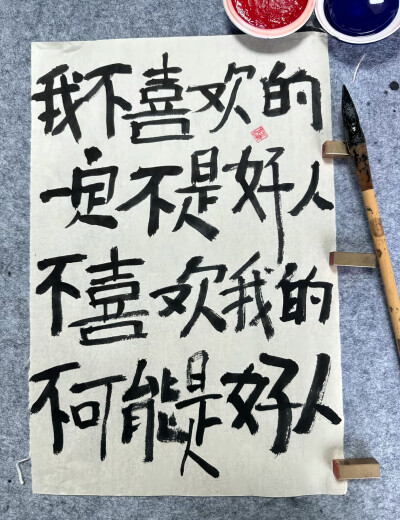 我不喜欢的
一定不是好人
不喜欢我的
不可能是好人